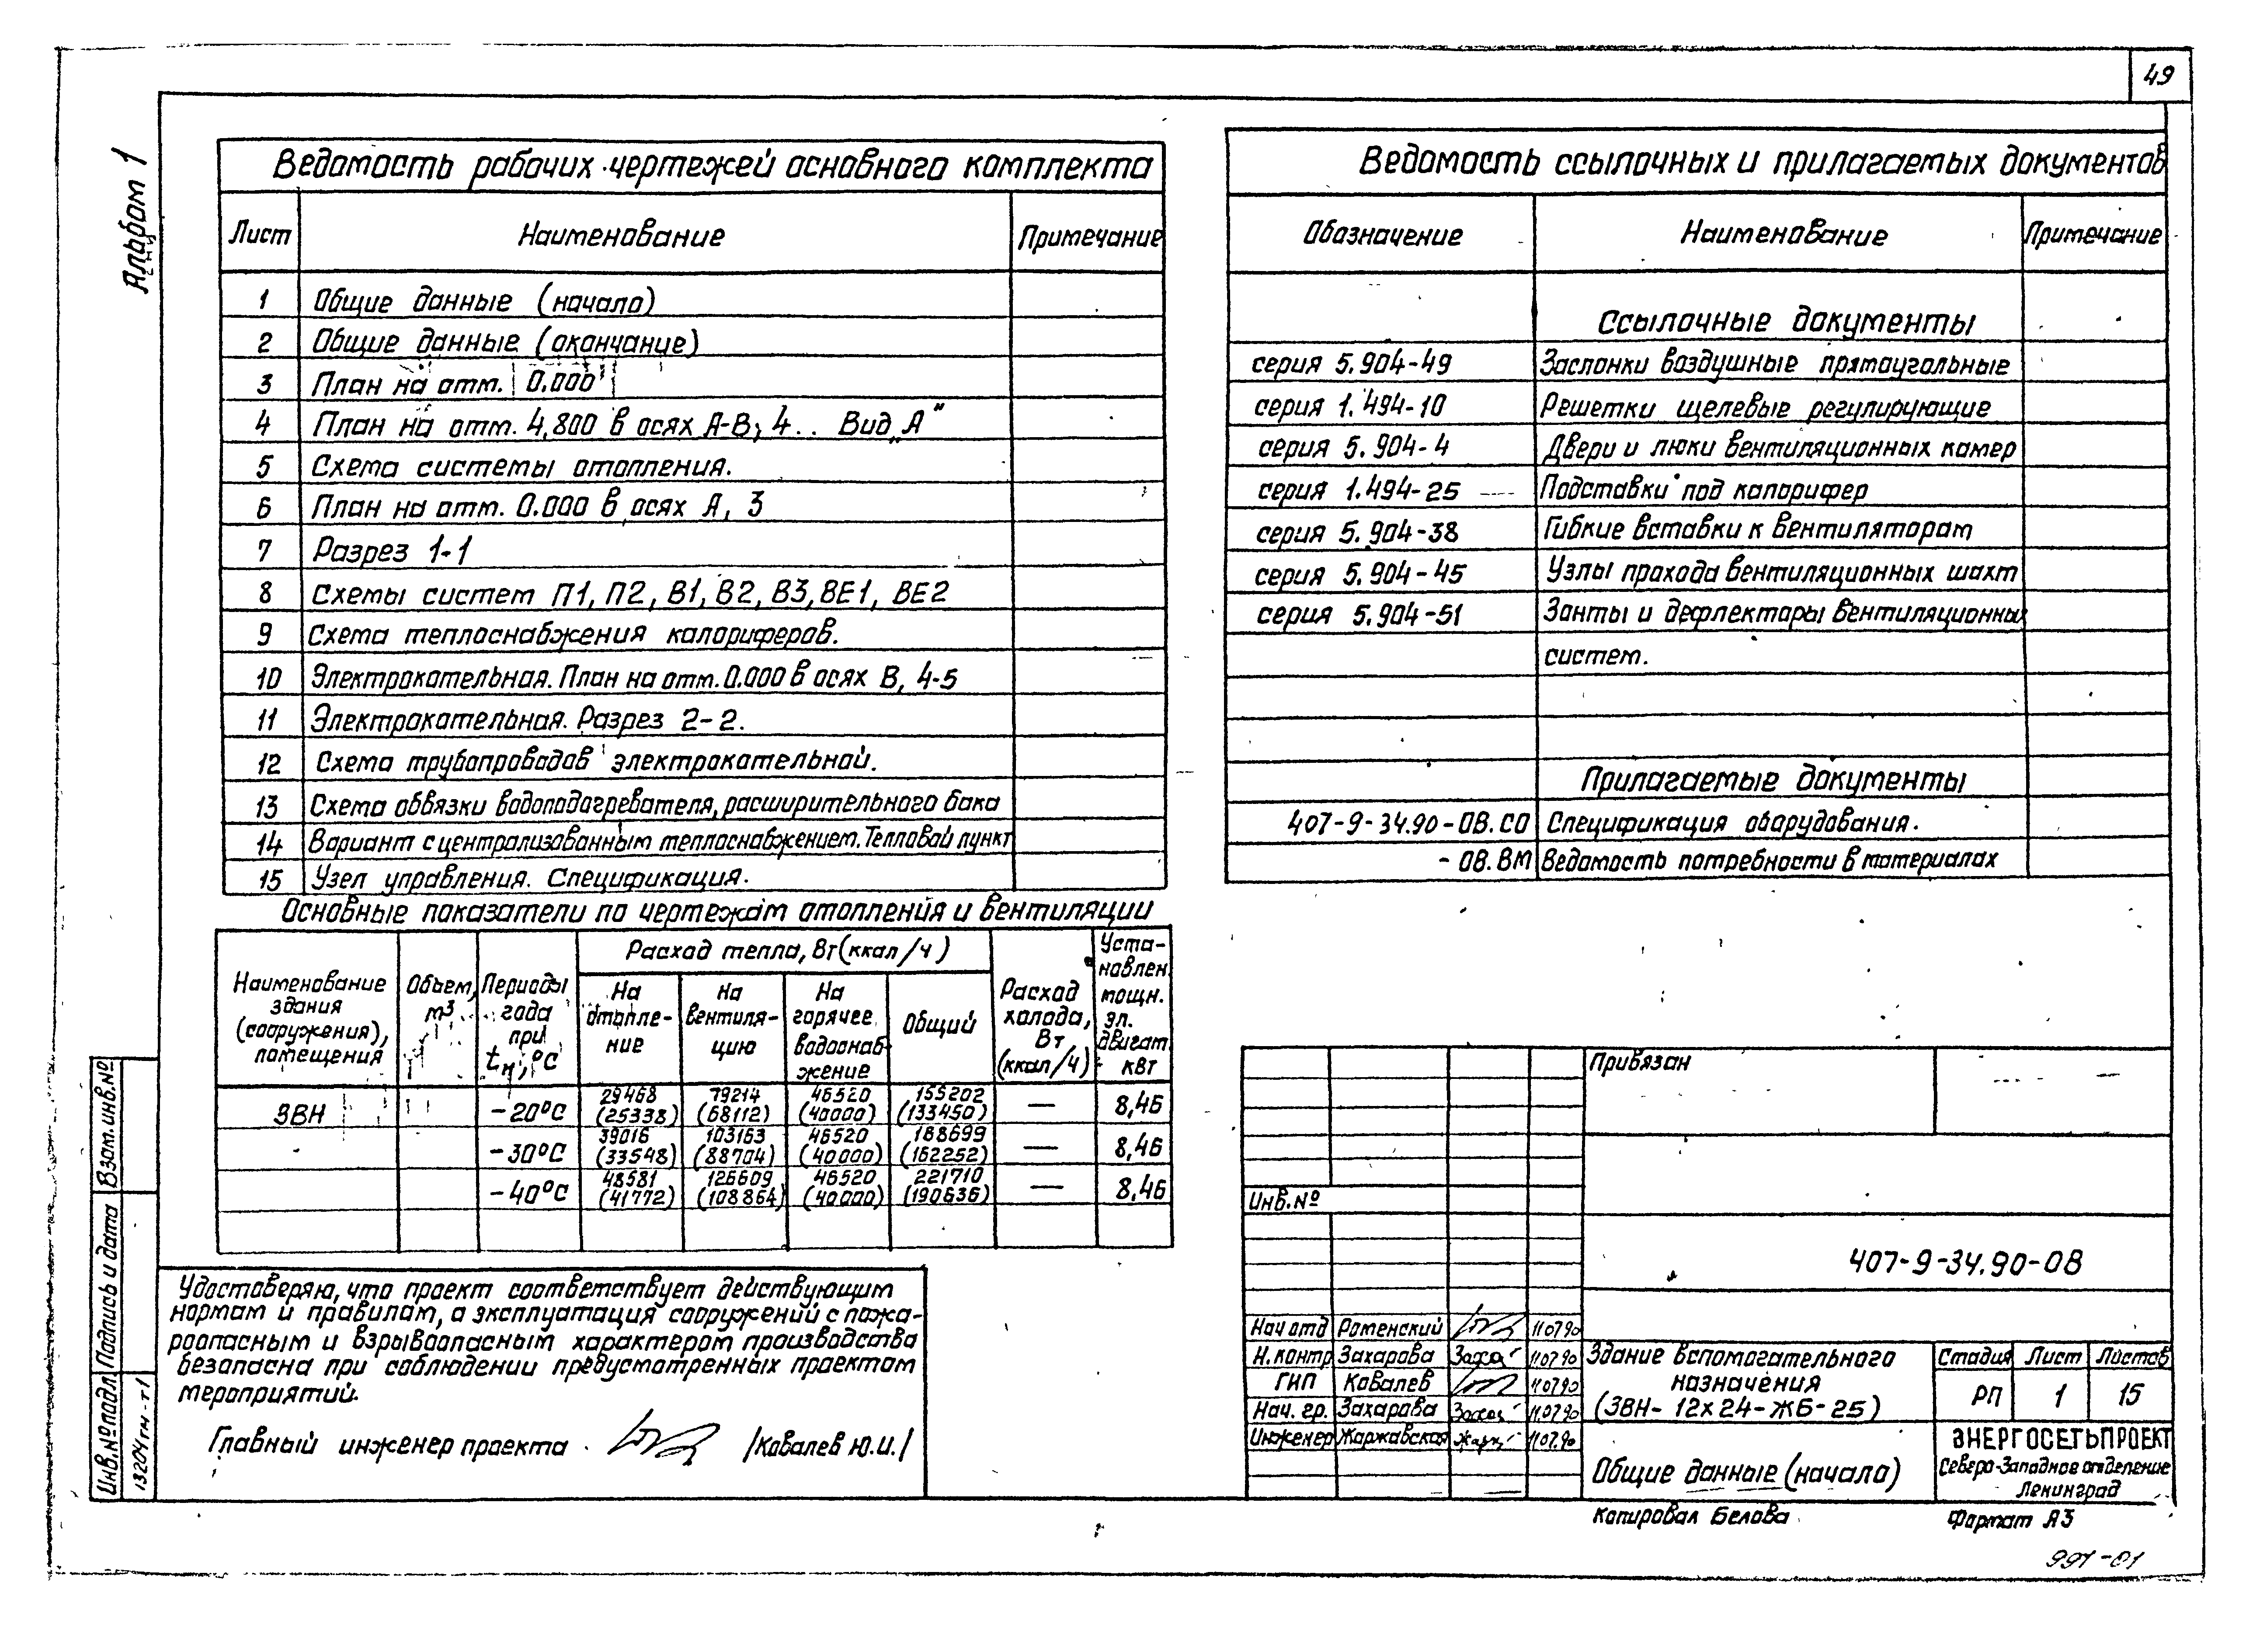 49
Альбом 1
Ведомость рабочих чертежей основного комплекта
Лист Наименование Примечание
1 Общие данные (начало)
2 Общие данные (окончание)
3 План на отм. 0.000
4 План на отм. 4,800 в осях А-В; 4.. Вид „А"
5 Схема системы отопления.
6 План на отм. 0.000 в осях А, 3
7 Разрез 1-1
8 Схемы систем П1, П2, В1, В2, В3, ВЕ1, ВЕ2
9 Схема теплоснабжения калориферов.
10 Электрокотельная. План на отм. 0.000 в осях В, 4-5
11 Электрокотельная. Разрез 2-2.
12 Схема трубопроводов электрокотельной.
13 Схема обвязки водоподогревателя, расширительного бака
14 Вариант с централизованным теплоснабжением. Тепловой пункт
15 Узел управления. Спецификация.
Ведомость ссылочных и прилагаемых документов
Обозначение Наименование Примечание
Ссылочные документы
серия 5.904-49 Заслонки воздушные прямоугольные
серия 1.494-10 Решетки щелевые регулирующие
серия 5.904-4 Двери и люки вентиляционных камер
серия 1.494-25 Подставки под калорифер
серия 5.904-38 Гибкие вставки к вентиляторам
серия 5.904-45 Узлы прохода вентиляционных шахт
серия 5.904-51 Зонты и дефлекторы вентиляционных
систем.
Прилагаемые документы
407-9-34.90-ОВ.СО Спецификация оборудования.
- ОВ.ВМ Ведомость потребности в материалах
Основные показатели по чертежам отопления и вентиляции
Наименование здания (сооружения), помещения
Объем, м³
Периоды года при tн, °С
Расход тепла, Вт (ккал/ч)
На отопле-ние
На вентиля-цию
На горячее водоснаб-жение
Общий
Расход холода, Вт (ккал/ч)
Уста-новлен. мощн. эл. двигат. кВт
ЗВН -20°С 29468 (25338) 79214 (68112) 46520 (40000) 155202 (133450) — 8,46
-30°С 39016 (33548) 103163 (88704) 46520 (40000) 188699 (162252) — 8,46
-40°С 48581 (41772) 126609 (108864) 46520 (40000) 221710 (190636) — 8,46
Удостоверяю, что проект соответствует действующим
нормам и правилам, а эксплуатация сооружений с пожа-
роопасным и взрывоопасным характером производства
безопасна при соблюдении предусмотренных проектом
мероприятий.
Главный инженер проекта /Ковалев Ю.И./
Взам. инв. №
Подпись и дата
Инв. № подл.
13204тм-т1
Привязан
Инв. №
407-9-34.90-ОВ
Нач отд Роменский 11.07.90
Н. контр Захарова Захар 11.07.90
ГИП Ковалев 11.07.90
Нач. гр. Захарова Захар 11.07.90
Инженер Жаржавская Жарж 11.07.90
Здание вспомогательного
назначения
(ЗВН- 12х24-ЖБ-25)
Стадия Лист Листов
РП 1 15
Общие данные (начало)
ЭНЕРГОСЕТЬПРОЕКТ
Северо-Западное отделение
Ленинград
Копировал Белова
Формат А3
991-01